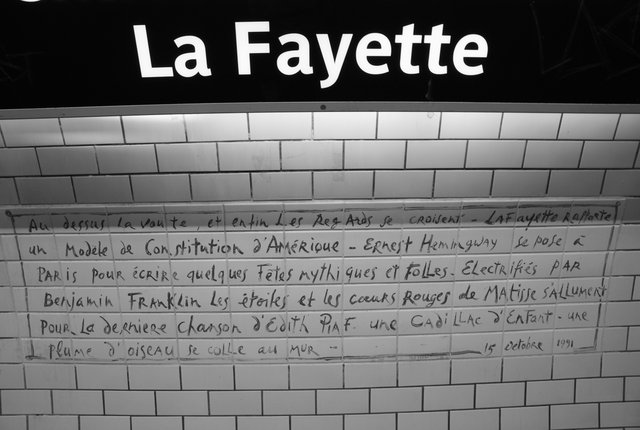 La Fayette
Au dessus la voute, et enfin Les Regards se croisent - LaFayette Rapporte
un Modele de Constitution d'Amérique - Ernest Hemingway se pose à
Paris pour écrire quelques Fêtes mythiques et folles. Electrifiés PAR
Benjamin Franklin Les étoiles et les cœurs Rouges de Matisse s'allument
pour La derniere chanson d'Edith Piaf. une Cadillac d'Enfant - une
plume d'oiseau se colle au mur -
15 Octobre 1991